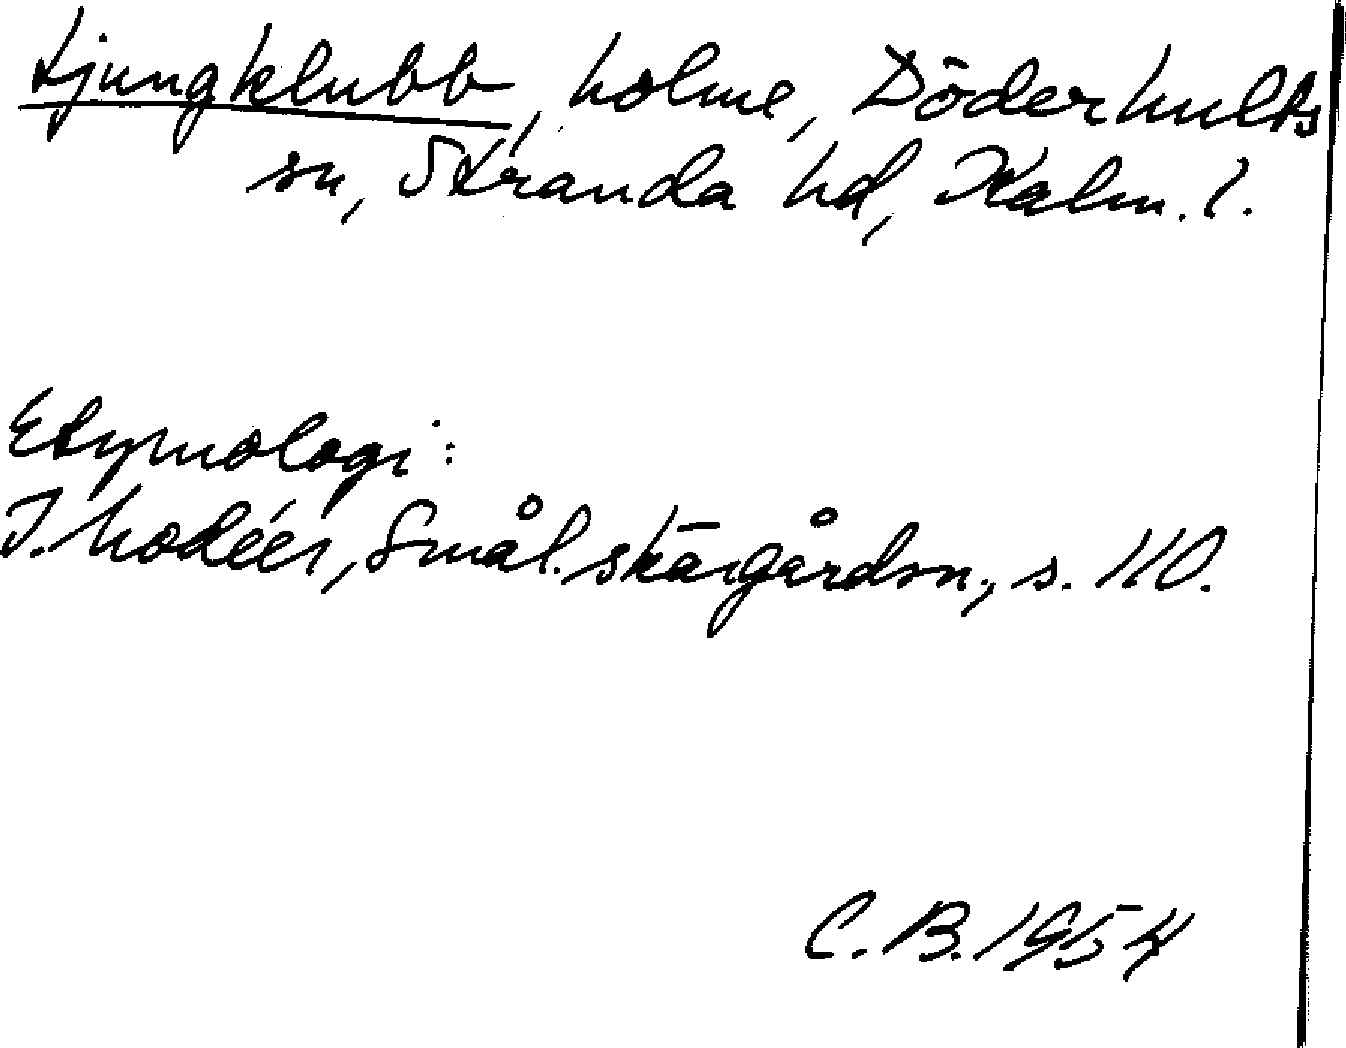 Ljungklubb, holme, Döderhults
sn, Stranda hd, Kalm. l.
Etymologi:
I. Modéer, Smål. skärgårdsn., s. 110.
C. B. 1954